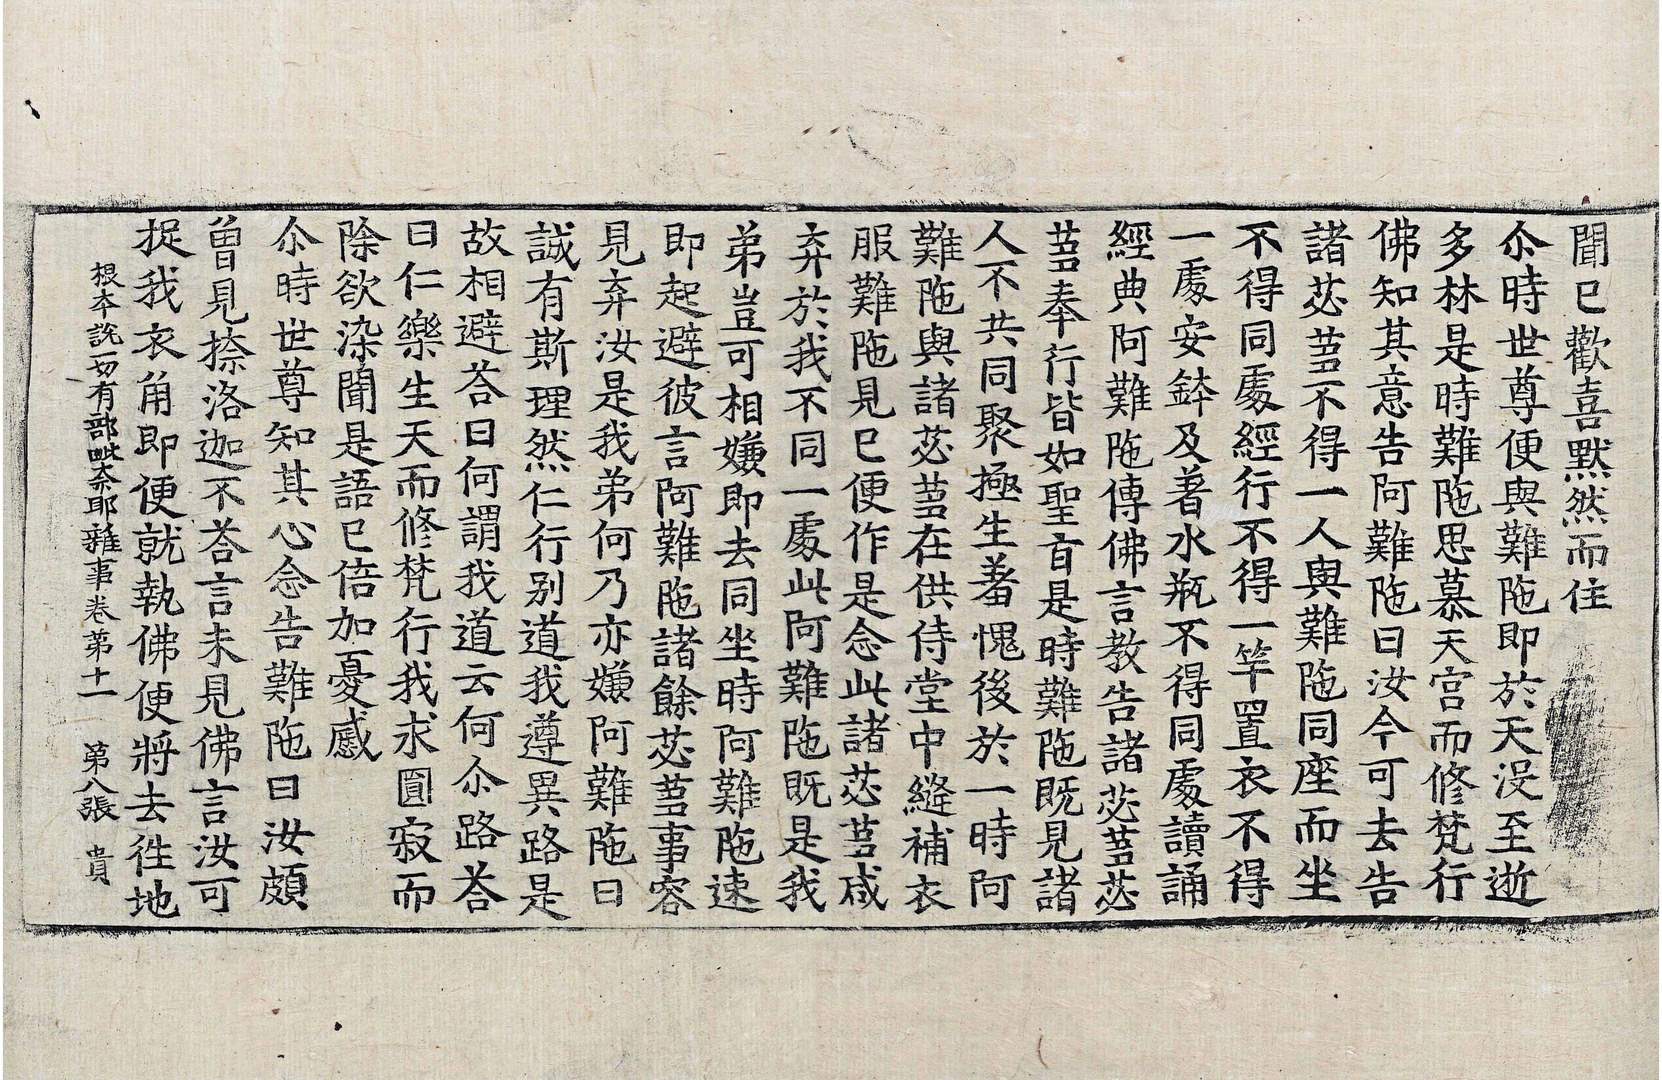 聞已歡喜默然而住
尒時世尊便與難陁即於天沒至逝
多林是時難陁思慕天宮而修梵行
佛知其意告阿難陁曰汝今可去告
諸苾蒭不得一人與難陁同座而坐
不得同處經行不得一竿置衣不得
一處安鉢及著水瓶不得同處讀誦
經典阿難陁傳佛言教告諸苾蒭苾
蒭奉行皆如聖旨是時難陁既見諸
人不共同聚極生羞愧後於一時阿
難陁與諸苾蒭在供侍堂中縫補衣
服難陁見已便作是念此諸苾蒭咸
弃於我不同一處此阿難陁既是我
弟豈可相嫌即去同坐時阿難陁速
即起避彼言阿難陁諸餘苾蒭事容
見弃汝是我弟何乃亦嫌阿難陁曰
誠有斯理然仁行别道我遵異路是
故相避荅曰何謂我道云何尒路荅
曰仁樂生天而修梵行我求圓寂而
除欲染聞是語已倍加憂慼
尒時世尊知其心念告難陁曰汝頗
曾見捺洛迦不荅言未見佛言汝可
捉我衣角即便就執佛便將去往地
根本說一切有部毗奈耶雜事卷第十一 第八張 貴